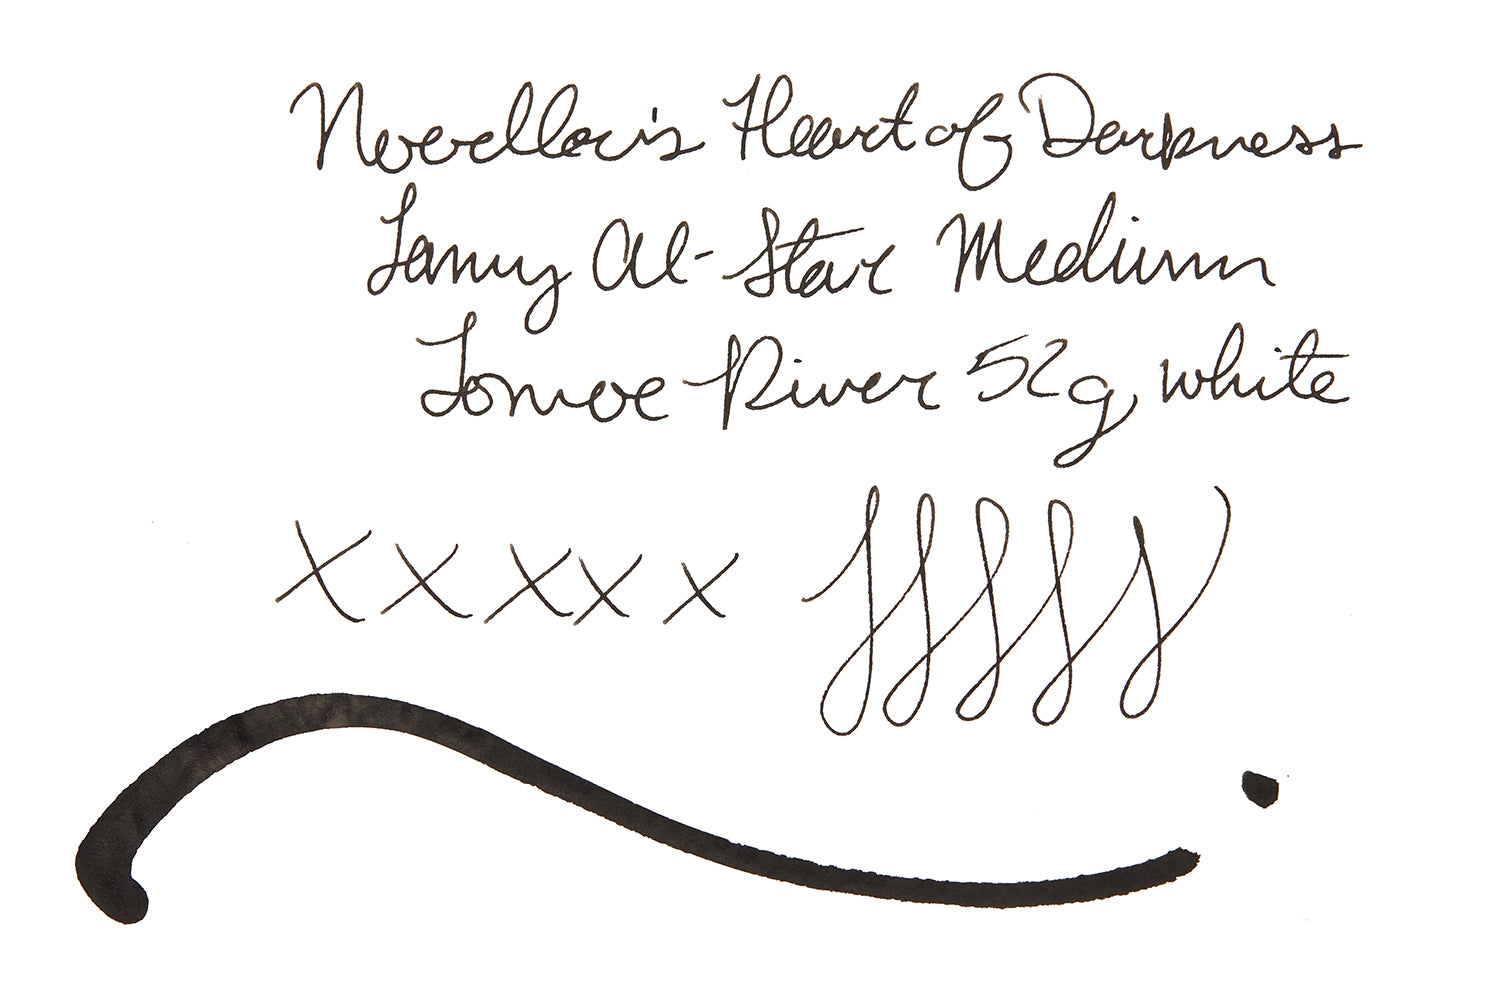 Noodler's Heart of Darkness
Lamy Al-Star Medium
Tomoe River 52g, white
x x x x x